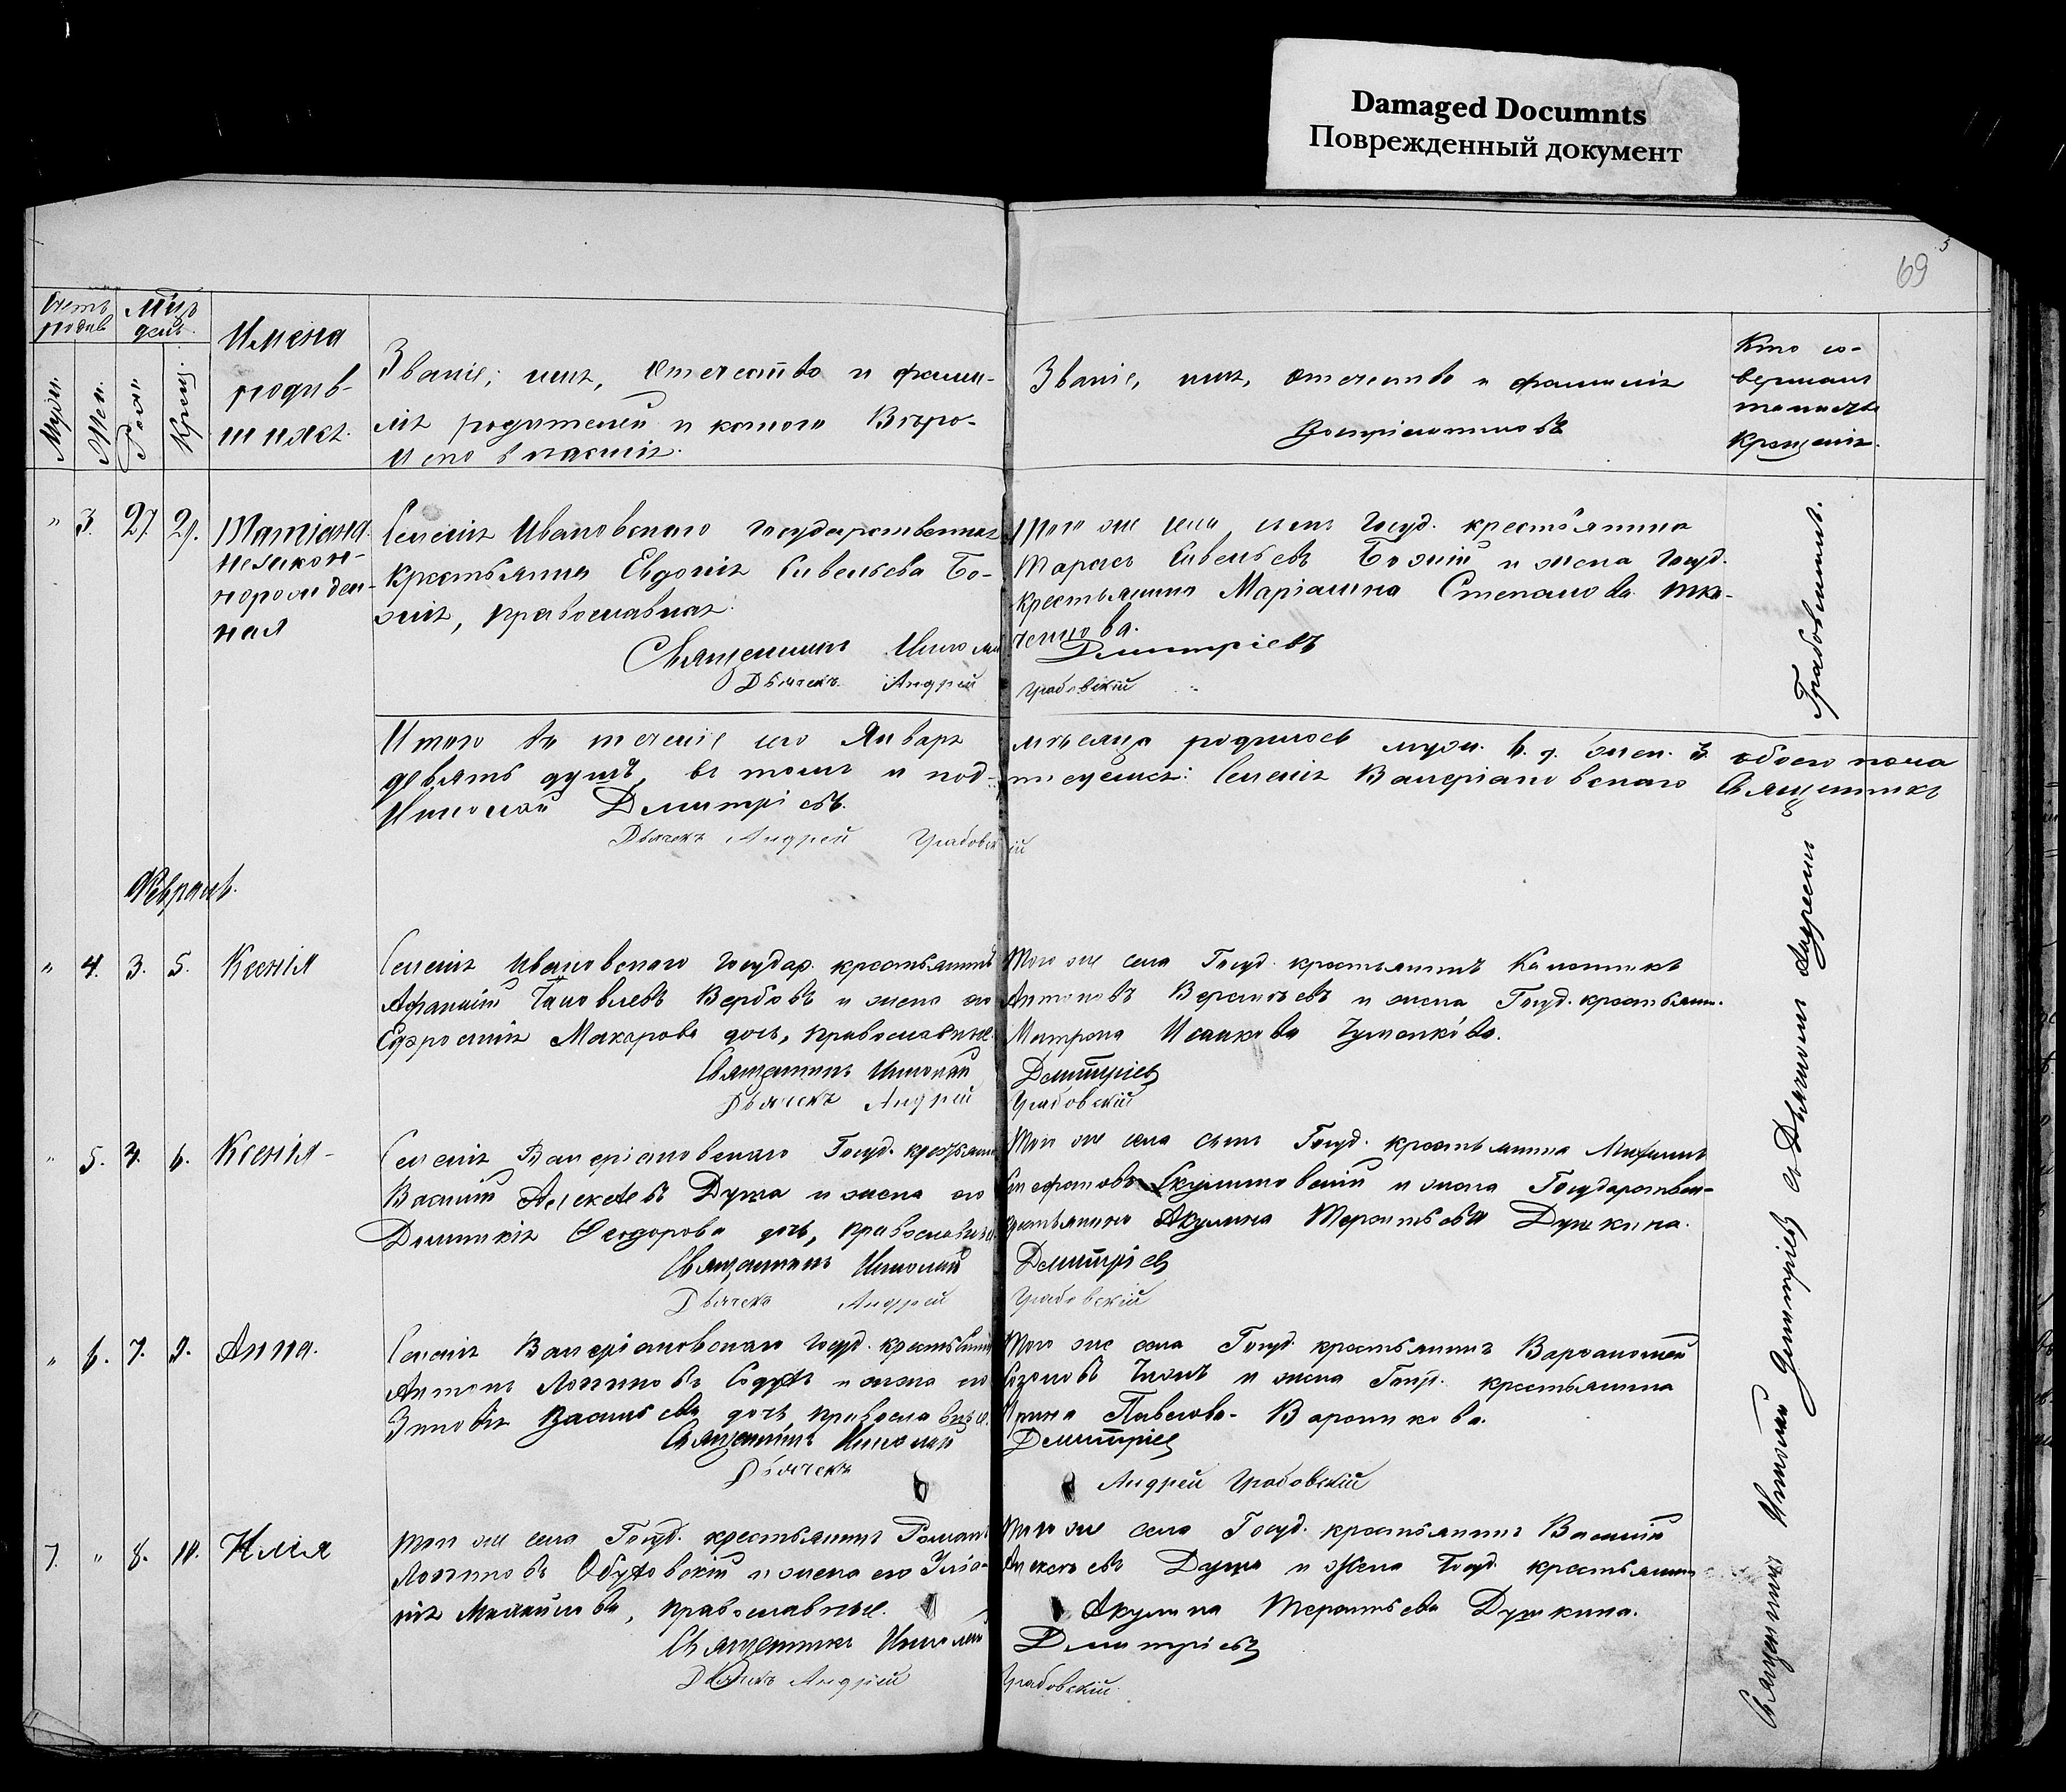 Damaged Documnts
Поврежденный документ
5
69
Счетъ
родив
Мѣс
день.
Муж.
Жен.
Рож
Крещ.
Имена
родив-
шихся.
Званіе, имя, отечество и фами-
лія родителей и какого Вѣро-
исповѣданія.
Званіе, имя, отечество и фамилія
Воспріемниковъ
Кто со-
вершалъ
таинство
Крещенія.
" 3. 27. 29. Татіана
незакон-
норожден-
ная
Селенія Ивановскаго государственная
крестьянка Евдокія Савельева Бо-
жія, православная.
Священникъ Николай
Дьячекъ Андрей
Того же села сынъ Госуд. крестьянина
Тарасъ Савельевъ Божій и жена Госуд.
крестьянина Маріамна Степанова Тка-
ченкова.
Дмитріевъ
Грабовскій
Итого въ теченіе сего Января
девять душъ, въ томъ и под-
Николай Дмитріевъ.
Дьячекъ Андрей Грабовскій
мѣсяца родилось муж. 6. жен. 3. обоего пола
писуемся: Селенія Валеріановскаго Священникъ
Февраль.
" 4. 3. 5. Ксенія
Селенія Ивановскаго Государ. крестьянинъ
Афанасій Яковлевъ Вербовъ и жена его
Евфросинія Макарова дочь, православные.
Священникъ Николай
Дьячекъ Андрей
Того же села Госуд. крестьянинъ
Антоновъ и жена Госуд. крестьянин.
Матрона Исаакова Чуманкова.
Дмитріевъ
Грабовскій
" 5. 4. 6. Ксенія
Селенія Валеріановскаго Госуд. крестьянинъ
Василій Алексѣевъ Душа и жена его
Домникія Ѳеодорова дочь, православные.
Священникъ Николай
Дьячекъ Андрей
Того же села сынъ Госуд. крестьянина Михаилъ
и жена Государствен-
крестьянина Акулина Терентьева Душкина.
Дмитріевъ
Грабовскій
" 6. 7. 9. Анна.
Селенія Валеріановскаго Госуд. крестьянинъ
Антонъ Логиновъ и жена его
Зиновія Васильева дочь, православные.
Священникъ Николай
Дьячекъ
Того же села Госуд. крестьянинъ Варѳоломей
и жена Госуд. крестьянина
Ирина Павелова Воронкова.
Дмитріевъ
Андрей Грабовскій
7. " 8. 10. Илія
Того же села Госуд. крестьянинъ Романъ
Логиновъ Обуховскій и жена его Уліа-
нія Михайлова, православные.
Священникъ Николай
Дьячекъ Андрей
Того же села Госуд. крестьянинъ Василій
Алексѣевъ Душа и жена Госуд. крестьянин
Акулина Терентьева Душкина.
Дмитріевъ
Грабовскій.
Священникъ Николай Дмитріевъ съ Дьячкомъ Андреемъ Грабовскимъ.